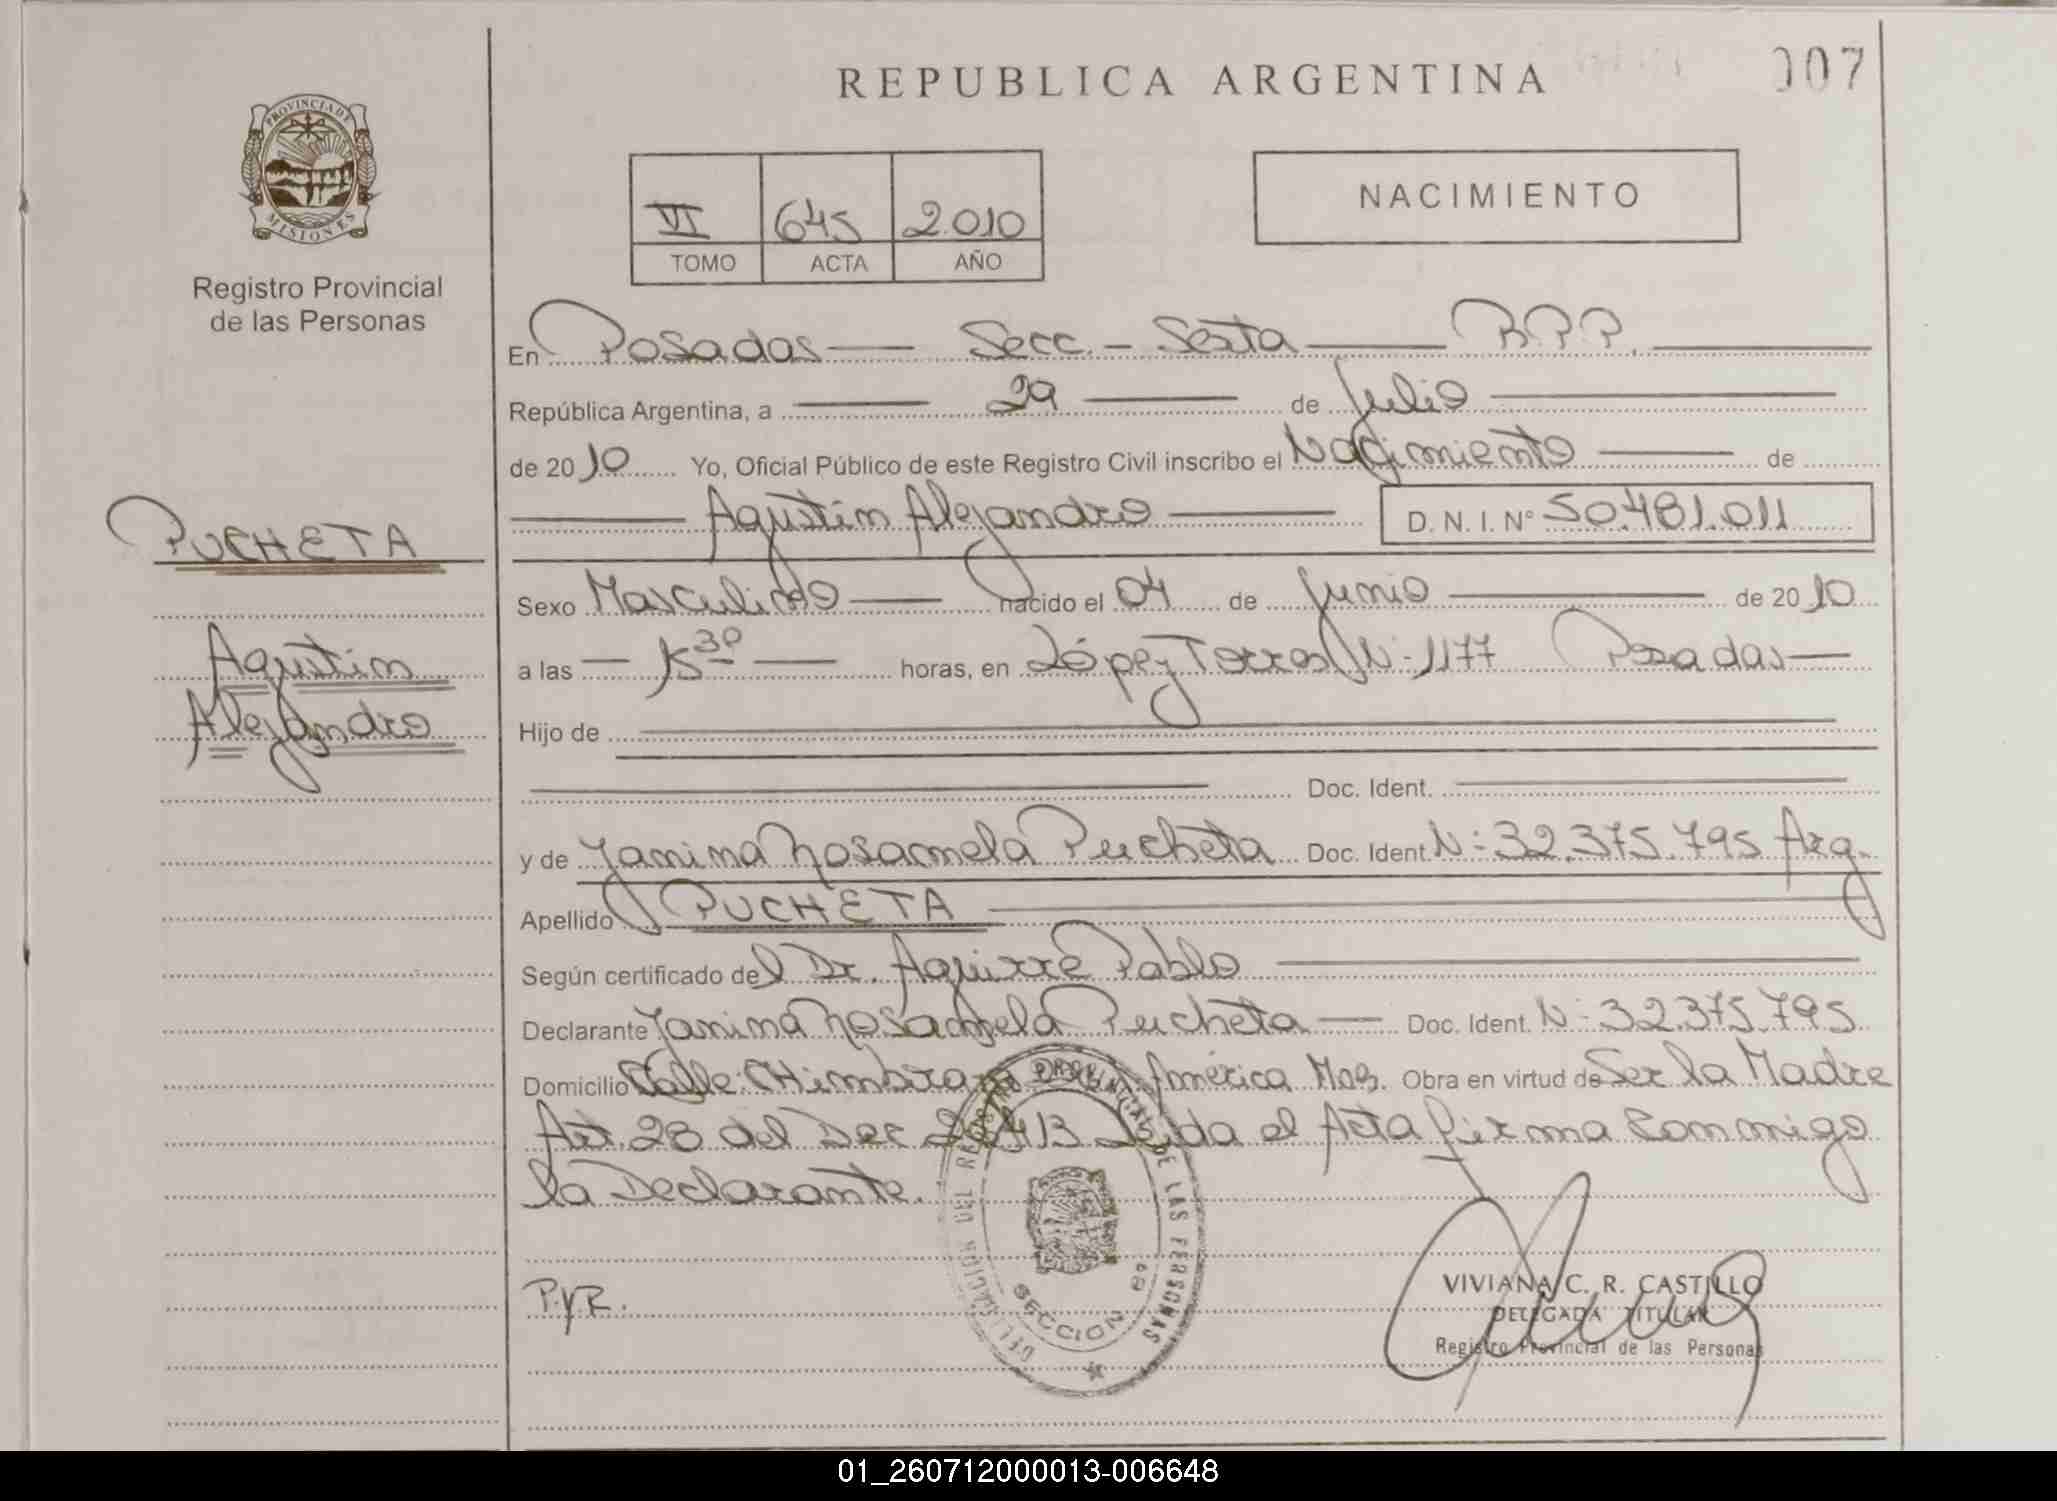 REPUBLICA ARGENTINA
007
PROVINCIA DE MISIONES
Registro Provincial
de las Personas
VI 645 2.010
TOMO ACTA AÑO
NACIMIENTO
En Posadas Secc. Sexta R.P.P.
República Argentina, a 29 de Julio
de 2010 Yo, Oficial Público de este Registro Civil inscribo el Nacimiento de
Agustin Alejandro D. N. I. Nº 50.481.011
PUCHETA
Agustin
Alejandro
Sexo Masculino nacido el 04 de Junio de 2010
a las 15 30 horas, en López Torres N- 1177 Posadas
Hijo de
Doc. Ident.
y de Yanina Rosamela Pucheta Doc. Ident. N: 32.375.795 Arg.
Apellido PUCHETA
Según certificado del Dr. Aguirre Pablo
Declarante Yanina Rosamela Pucheta Doc. Ident. N- 32.375.795
Domicilio Calle: América Mos. Obra en virtud de Ser la Madre
Art. 28 del Dec Leida el Acta firma Conmigo
la Declarante.
DELEGACION DEL REGISTRO PROVINCIAL DE LAS PERSONAS
SECCION 6ª
P.y R.
VIVIANA C. R. CASTILLO
DELEGADA TITULAR
Registro Provincial de las Personas
01_260712000013-006648